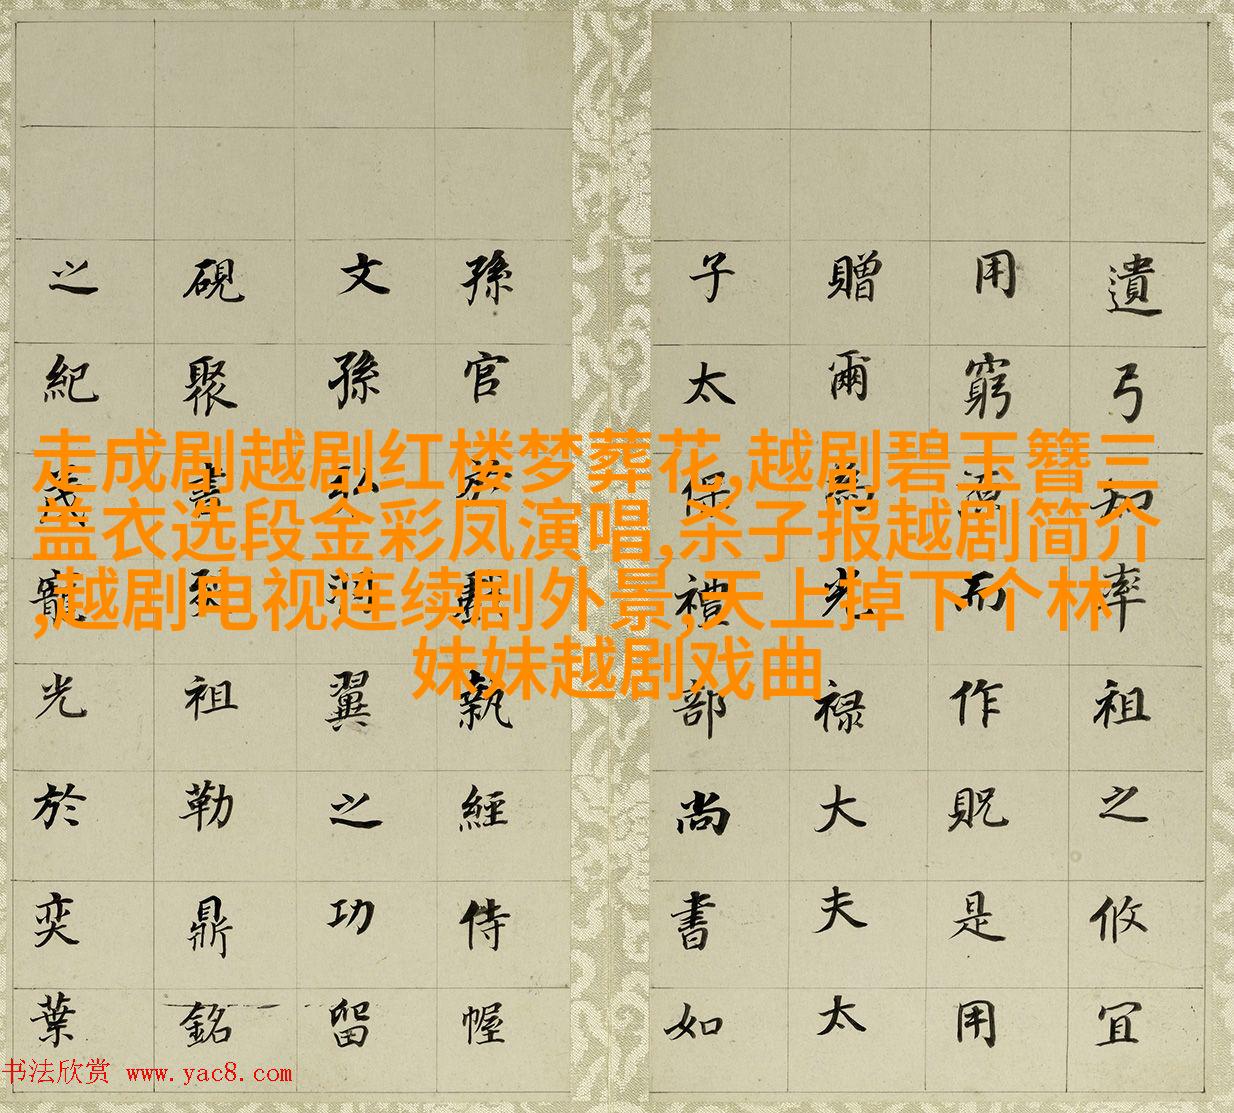 走成剧越剧红楼梦葬花,越剧碧玉簪三
盖衣选段金彩凤演唱,杀子报越剧简介
,越剧电视连续剧外景,天上掉下个林
妹妹越剧戏曲
遺弓知率祖之攸宜
用窮而作貺是用
贈爾為光祿大夫太
子太保禮部尚書如
孫官於執經侍幄
文孫弘翼之功留
硯聚書祖勒鼎銘
之紀寵光於奕葉
书法欣赏 www.yac8.com